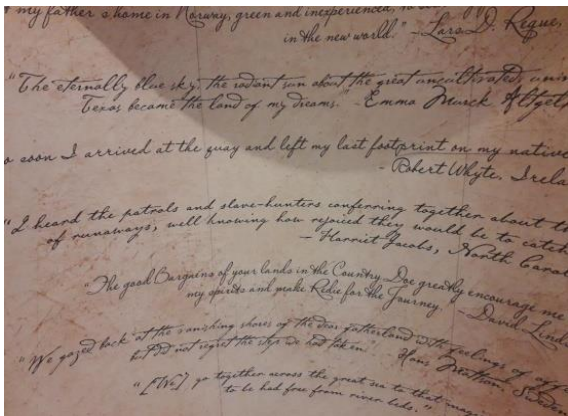 my father's home in Norway, green and inexperienced, to
in the new world." - Lars D. Reque,
"The eternally blue sky, the radiant sun about the great uncultivated,
Texas became the land of my dreams." - Emma Murck Altgelt
soon I arrived at the quay and left my last footprint on my native
- Robert Whyte, Irela
"I heard the patrols and slave-hunters conferring together about th
of runaways, well knowing how rejoiced they would be to catch
- Harriet Jacobs, North Carol
"The good Bargains of your lands in the Country Doe greatly encourage me
my spirits and make Redie for the Journey. - David Lind
"We gazed back at the vanishing shores of the dear fatherland with feelings of
but did not regret the step we had taken." Hans Mattson, Sweden
"[We] go together across the great sea to that
to be had free from river beds.